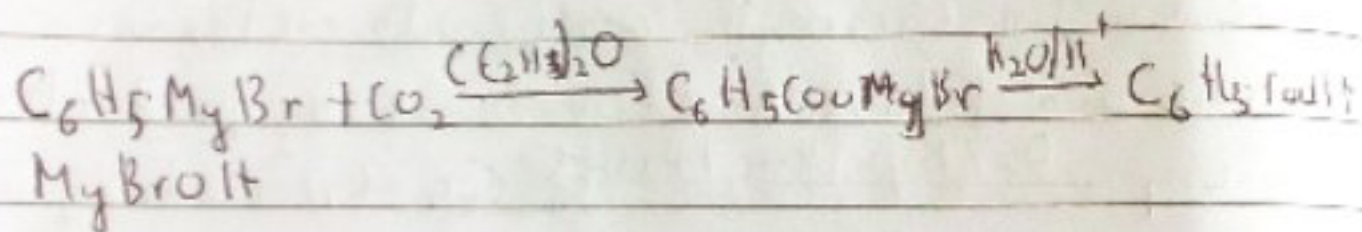 C₆H₅MgBr + CO₂ —(C₂H₅)₂O→ C₆H₅COOMgBr —H₂O/H⁺→ C₆H₅COOH +
MgBrOH